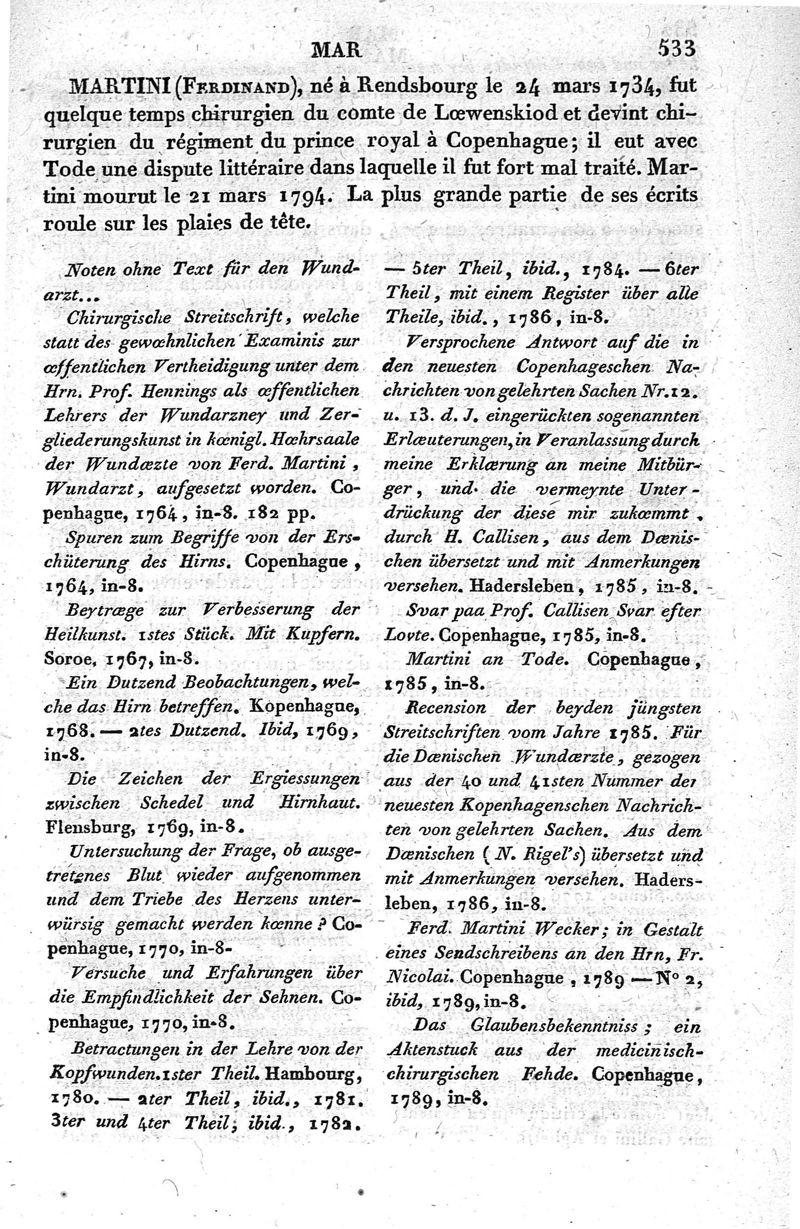 MAR 533
MARTINI (FERDINAND), né à Rendsbourg le 24 mars 1734, fut
quelque temps chirurgien du comte de Lœwenskiod et devint chi-
rurgien du régiment du prince royal à Copenhague; il eut avec
Tode une dispute littéraire dans laquelle il fut fort mal traité. Mar-
tini mourut le 21 mars 1794. La plus grande partie de ses écrits
roule sur les plaies de tête.
Noten ohne Text für den Wund-
arzt...
Chirurgische Streitschrift, welche
statt des gewœhnlichen Examinis zur
œffentlichen Vertheidigung unter dem
Hrn. Prof. Hennings als œffentlichen
Lehrers der Wundarzney und Zer-
gliederungskunst in kœnigl. Hœhrsaale
der Wundæzte von Ferd. Martini,
Wundarzt, aufgesetzt worden. Co-
penhague, 1764, in-8. 182 pp.
Spuren zum Begriffe von der Ers-
chüterung des Hirns. Copenhague,
1764, in-8.
Beytræge zur Verbesserung der
Heilkunst. 1stes Stück. Mit Kupfern.
Soroe, 1767, in-8.
Ein Dutzend Beobachtungen, wel-
che das Hirn betreffen. Kopenhague,
1768. — 2tes Dutzend. Ibid, 1769,
in-8.
Die Zeichen der Ergiessungen
zwischen Schedel und Hirnhaut.
Flensburg, 1769, in-8.
Untersuchung der Frage, ob ausge-
tretenes Blut wieder aufgenommen
und dem Triebe des Herzens unter-
würsig gemacht werden kœnne? Co-
penhague, 1770, in-8-
Versuche und Erfahrungen über
die Empfindlichkeit der Sehnen. Co-
penhague, 1770, in-8.
Betractungen in der Lehre von der
Kopfwunden. 1ster Theil. Hambourg,
1780. — 2ter Theil, ibid., 1781.
3ter und 4ter Theil, ibid., 1782.
— 5ter Theil, ibid., 1784. — 6ter
Theil, mit einem Register über alle
Theile, ibid., 1786, in-8.
Versprochene Antwort auf die in
den neuesten Copenhageschen Na-
chrichten von gelehrten Sachen Nr. 12.
u. 13. d. J. eingerückten sogenannten
Erlæuterungen, in Veranlassung durch
meine Erklærung an meine Mitbür-
ger, und die vermeynte Unter-
drückung der diese mir zukœmmt,
durch H. Callisen, aus dem Dænis-
chen übersetzt und mit Anmerkungen
versehen. Hadersleben, 1785, in-8.
Svar paa Prof. Callisen Svar efter
Lovte. Copenhague, 1785, in-8.
Martini an Tode. Copenhague,
1785, in-8.
Recension der beyden jüngsten
Streitschriften vom Jahre 1785. Für
die Dænischen Wundærzte, gezogen
aus der 40 und 41sten Nummer der
neuesten Kopenhagenschen Nachrich-
ten von gelehrten Sachen. Aus dem
Dænischen (N. Rigel's) übersetzt und
mit Anmerkungen versehen. Haders-
leben, 1786, in-8.
Ferd. Martini Wecker; in Gestalt
eines Sendschreibens an den Hrn, Fr.
Nicolai. Copenhague, 1789 — N° 2,
ibid, 1789, in-8.
Das Glaubensbekenntniss; ein
Aktenstuck aus der medicinisch-
chirurgischen Fehde. Copenhague,
1789, in-8.